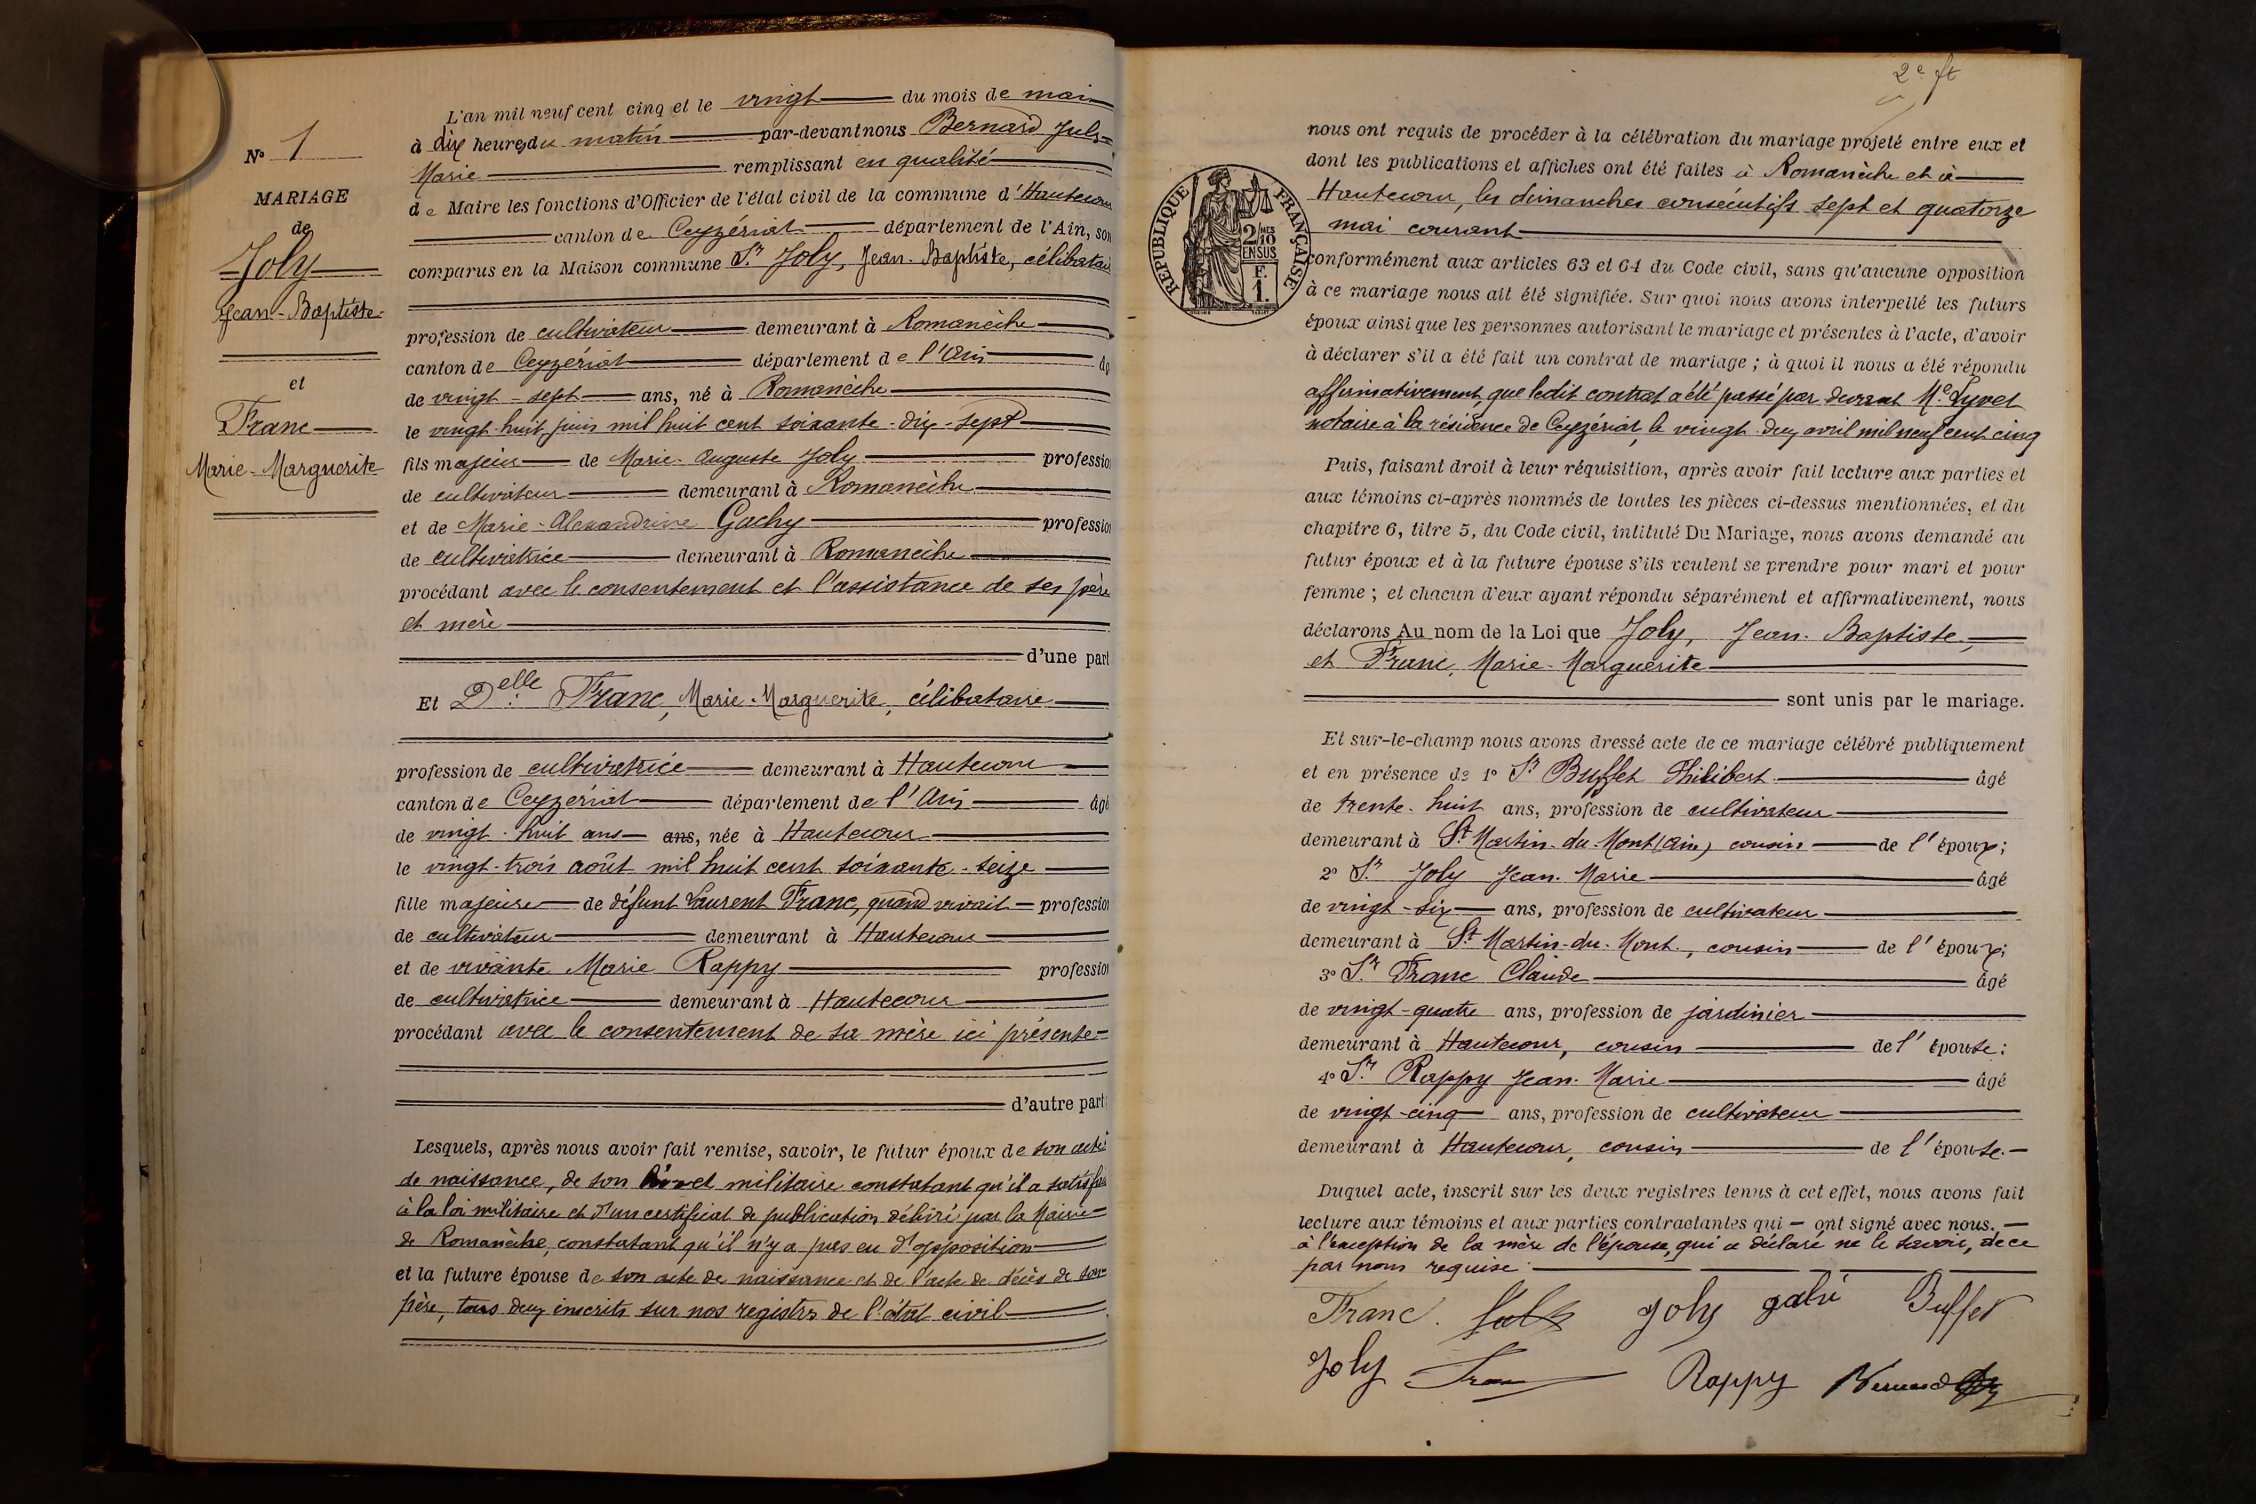 N° 1
MARIAGE
de
Joly
Jean-Baptiste
et
Franc
Marie-Marguerite
L'an mil neuf cent cinq et le vingt du mois de mai
à dix heures du matin par-devant nous Bernard Jules
Marie remplissant en qualité
de Maire les fonctions d'Officier de l'état civil de la commune d'Hautecour
canton de Ceyzériat département de l'Ain, son
comparus en la Maison commune Sr Joly, Jean-Baptiste, célibatai
profession de cultivateur demeurant à Romanèche
canton de Ceyzériat département de l'Ain
de vingt-sept ans, né à Romanèche
le vingt-huit juin mil huit cent soixante-dix-sept
fils majeur de Marie-Auguste Joly professio
de cultivateur demeurant à Romanèche
et de Marie-Alexandrine Gachy profession
de cultivatrice demeurant à Romanèche
procédant avec le consentement et l'assistance de ses père
et mère
d'une part
Et Delle Franc, Marie-Marguerite, célibataire
profession de cultivatrice demeurant à Hautecour
canton de Ceyzériat département de l'Ain âgé
de vingt-huit ans ans, née à Hautecour
le vingt-trois août mil huit cent soixante-seize
fille majeure de défunt Laurent Franc, quand vivait profession
de cultivateur demeurant à Hautecour
et de vivante Marie Rappy profession
de cultivatrice demeurant à Hautecour
procédant avec le consentement de sa mère ici présente
d'autre part
Lesquels, après nous avoir fait remise, savoir, le futur époux de son acte
de naissance, de son livret militaire constatant qu'il a satisfait
à la loi militaire et d'un certificat de publication délivré par la Mairie
de Romanèche, constatant qu'il n'y a pas eu d'opposition
et la future épouse de son acte de naissance et de l'acte de décès de son
père, tous deux inscrits sur nos registres de l'état civil
2e ft
nous ont requis de procéder à la célébration du mariage projeté entre eux et
dont les publications et affiches ont été faites à Romanèche et à
Hautecour, les dimanches consécutifs sept et quatorze
mai courant
RÉPUBLIQUE FRANÇAISE
2/10 MES
EN SUS
F.
1.
conformément aux articles 63 et 64 du Code civil, sans qu'aucune opposition
à ce mariage nous ait été signifiée. Sur quoi nous avons interpellé les futurs
époux ainsi que les personnes autorisant le mariage et présentes à l'acte, d'avoir
à déclarer s'il a été fait un contrat de mariage ; à quoi il nous a été répondu
affirmativement, que ledit contrat a été passé par devant Me Lyvet
notaire à la résidence de Ceyzériat, le vingt-deux avril mil neuf cent cinq
Puis, faisant droit à leur réquisition, après avoir fait lecture aux parties et
aux témoins ci-après nommés de toutes les pièces ci-dessus mentionnées, et du
chapitre 6, titre 5, du Code civil, intitulé Du Mariage, nous avons demandé au
futur époux et à la future épouse s'ils veulent se prendre pour mari et pour
femme ; et chacun d'eux ayant répondu séparément et affirmativement, nous
déclarons Au nom de la Loi que Joly, Jean-Baptiste,
et Franc, Marie-Marguerite
sont unis par le mariage.
Et sur-le-champ nous avons dressé acte de ce mariage célébré publiquement
et en présence de 1° Sr Buffet Philibert âgé
de trente-huit ans, profession de cultivateur
demeurant à St Martin-du-Mont (Ain) cousin de l'époux ;
2° Sr Joly Jean-Marie âgé
de vingt-six ans, profession de cultivateur
demeurant à St Martin-du-Mont, cousin de l'époux ;
3° Sr Franc Claude âgé
de vingt-quatre ans, profession de jardinier
demeurant à Hautecour, cousin de l'épouse :
4° Sr Rappy Jean-Marie âgé
de vingt-cinq ans, profession de cultivateur
demeurant à Hautecour, cousin de l'épouse.
Duquel acte, inscrit sur les deux registres tenus à cet effet, nous avons fait
lecture aux témoins et aux parties contractantes qui ont signé avec nous.
à l'exception de la mère de l'épouse, qui a déclaré ne le savoir, de ce
par nous requise
Franc. Joly galri Buffet
Joly Franc Rappy Bernard